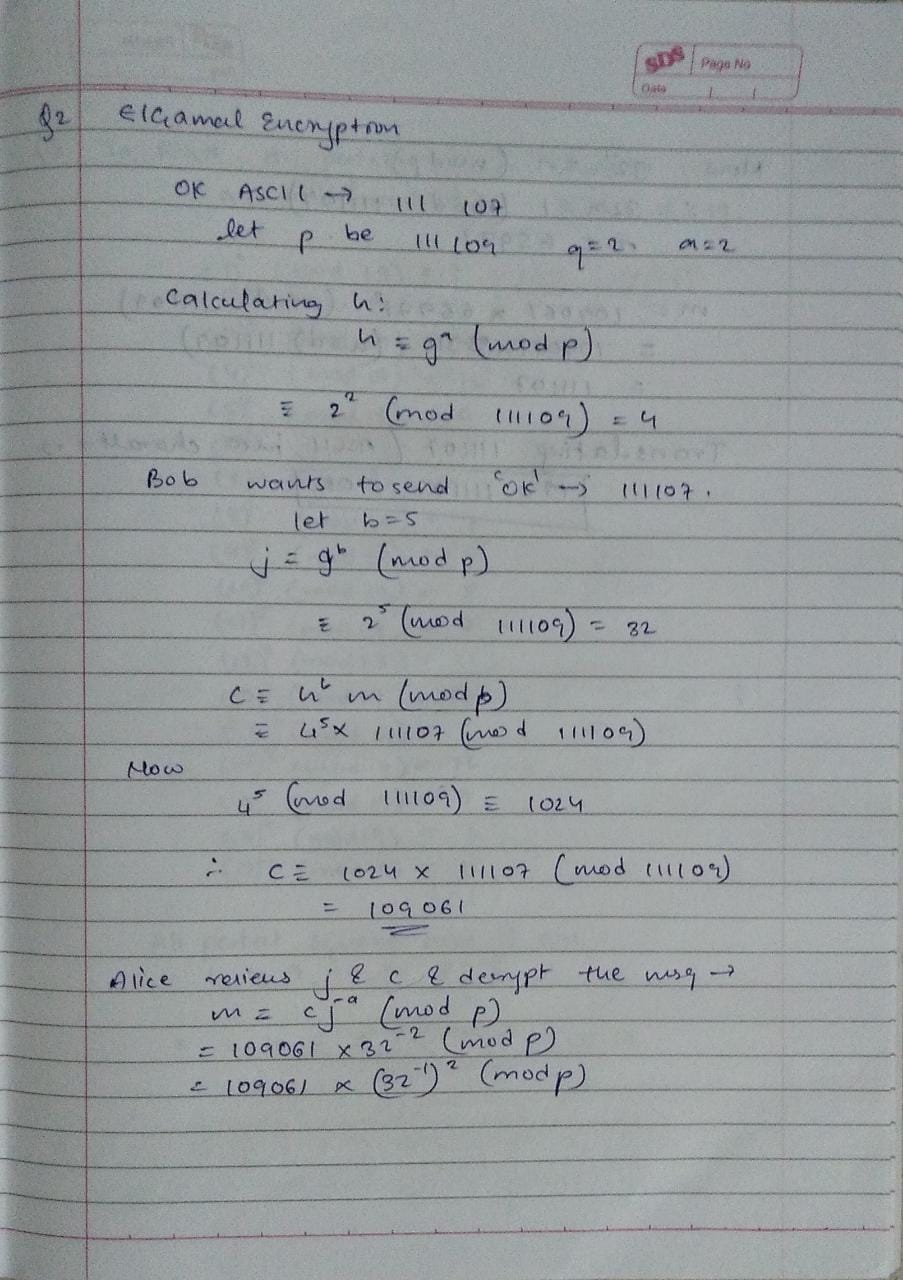 SDS Page No
Date
Q2 ElGamal Encryption
OK ASCII → 111 107
let p be 111 109 g=2, a=2
Calculating h:
h = gᵃ (mod p)
≡ 2² (mod 111109) = 4
Bob wants to send 'OK' → 111107.
let b=5
j = gᵇ (mod p)
≡ 2⁵ (mod 111109) = 32
C ≡ hᵇ m (mod p)
≡ 4⁵ × 111107 (mod 111109)
Now
4⁵ (mod 111109) ≡ 1024
∴ C ≡ 1024 × 111107 (mod 111109)
= 109061
Alice j & c & the msg →
m = cj⁻ᵃ (mod p)
= 109061 × 32⁻² (mod p)
= 109061 × (32⁻¹)² (mod p)